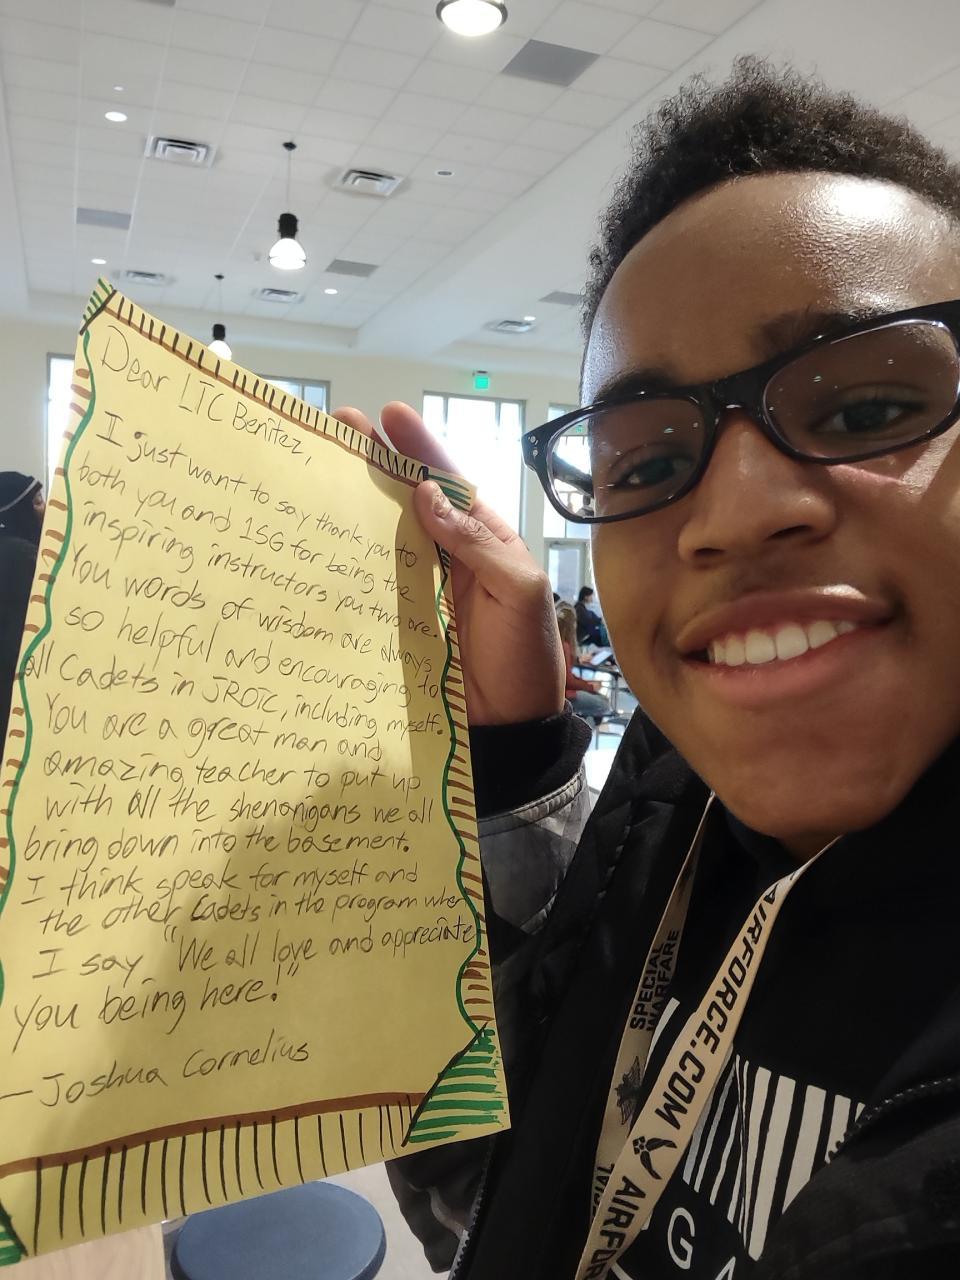 Dear LTC Benitez,
I just want to say thank you to
both you and 1SG for being the
inspiring instructors you two are.
You words of wisdom are always
so helpful and encouraging to
all Cadets in JROTC, including myself.
You are a great man and
amazing teacher to put up
with all the shenanigans we all
bring down into the basement.
I think speak for myself and
the other Cadets in the program when
I say "We all love and appreciate
you being here!"
- Joshua Cornelius
SPECIAL
WARFARE
AIRFORCE.COM
AIRFORC
G